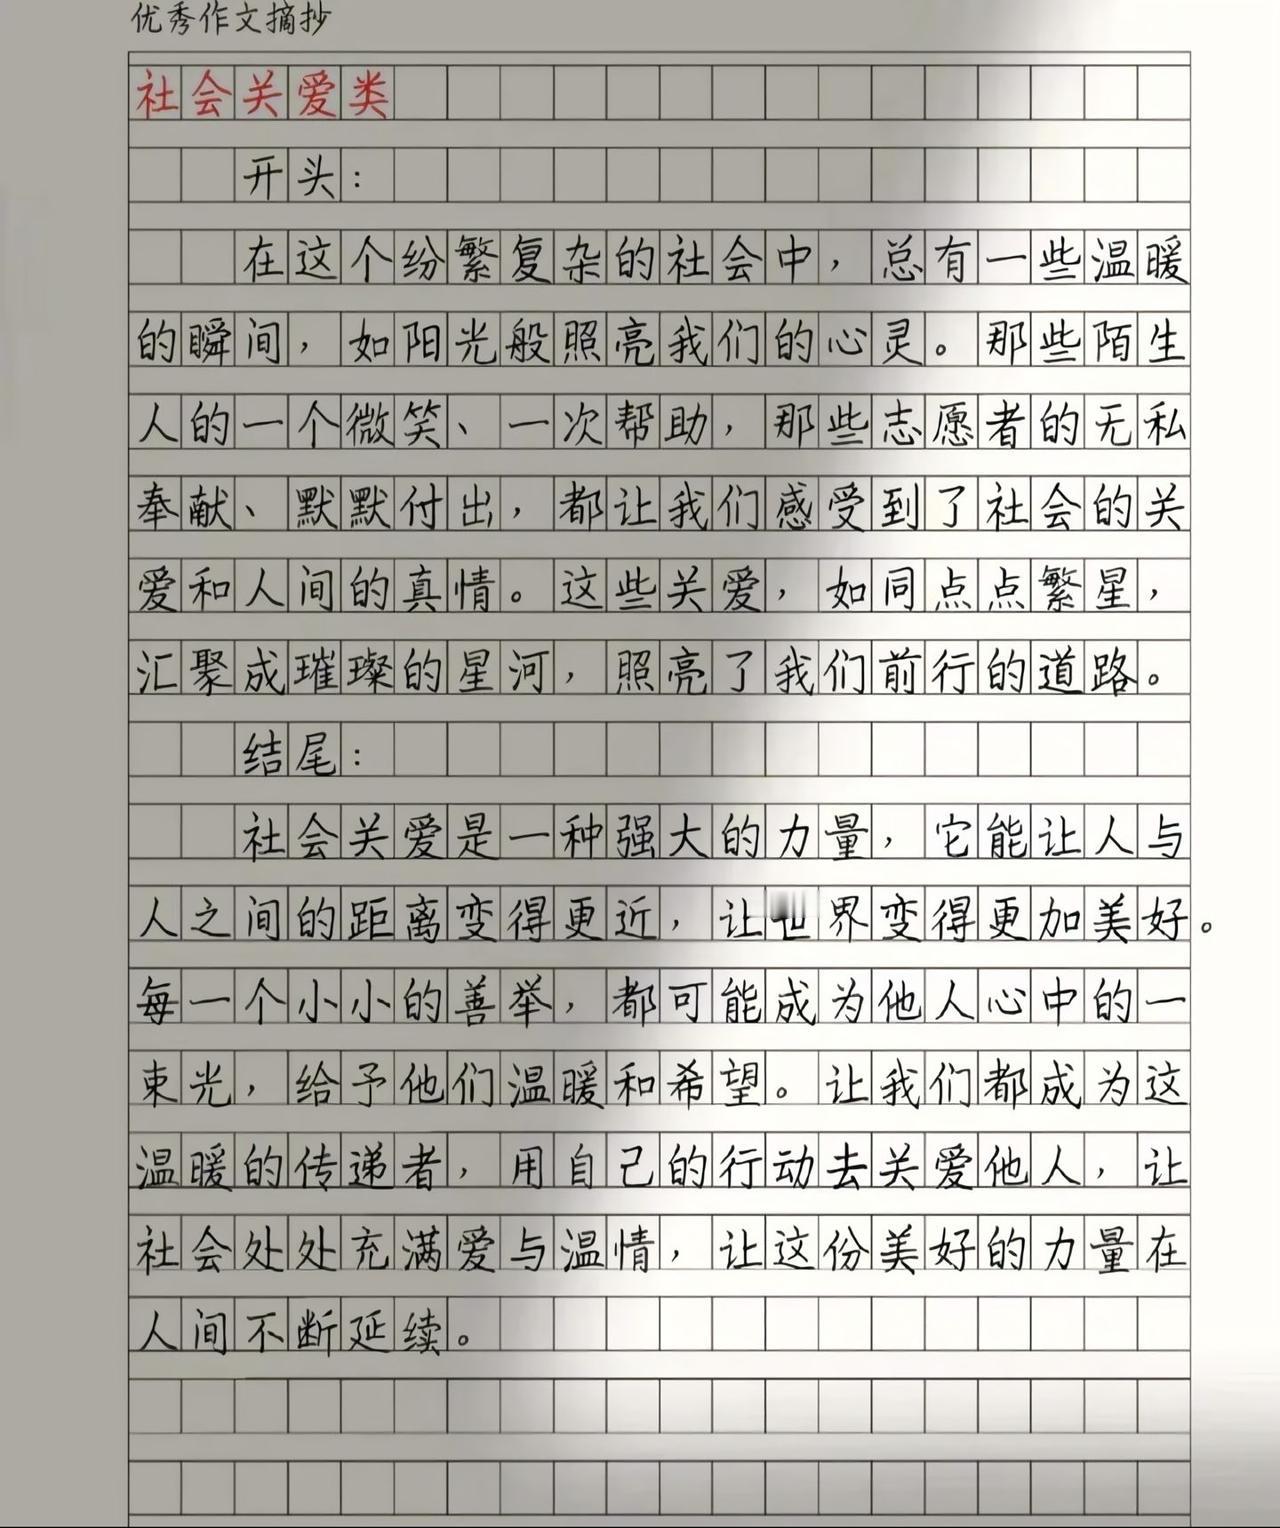 优秀作文摘抄
社会关爱类
开头：
在这个纷繁复杂的社会中，总有一些温暖
的瞬间，如阳光般照亮我们的心灵。那些陌生
人的一个微笑、一次帮助，那些志愿者的无私
奉献、默默付出，都让我们感受到了社会的关
爱和人间的真情。这些关爱，如同点点繁星，
汇聚成璀璨的星河，照亮了我们前行的道路。
结尾：
社会关爱是一种强大的力量，它能让人与
人之间的距离变得更近，让世界变得更加美好。
每一个小小的善举，都可能成为他人心中的一
束光，给予他们温暖和希望。让我们都成为这
温暖的传递者，用自己的行动去关爱他人，让
社会处处充满爱与温情，让这份美好的力量在
人间不断延续。